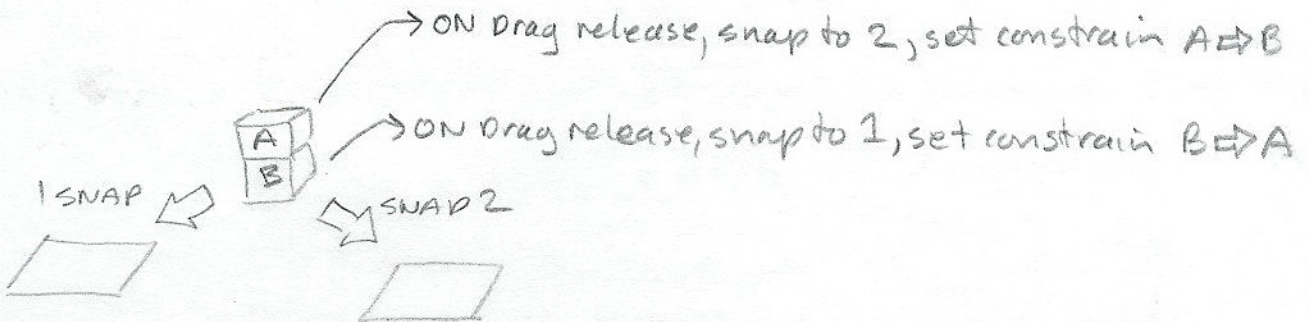 ON Drag release, snap to 2, set constrain A⇨B
A
ON Drag release, snap to 1, set constrain B⇨A
B
1 SNAP
SNAP 2